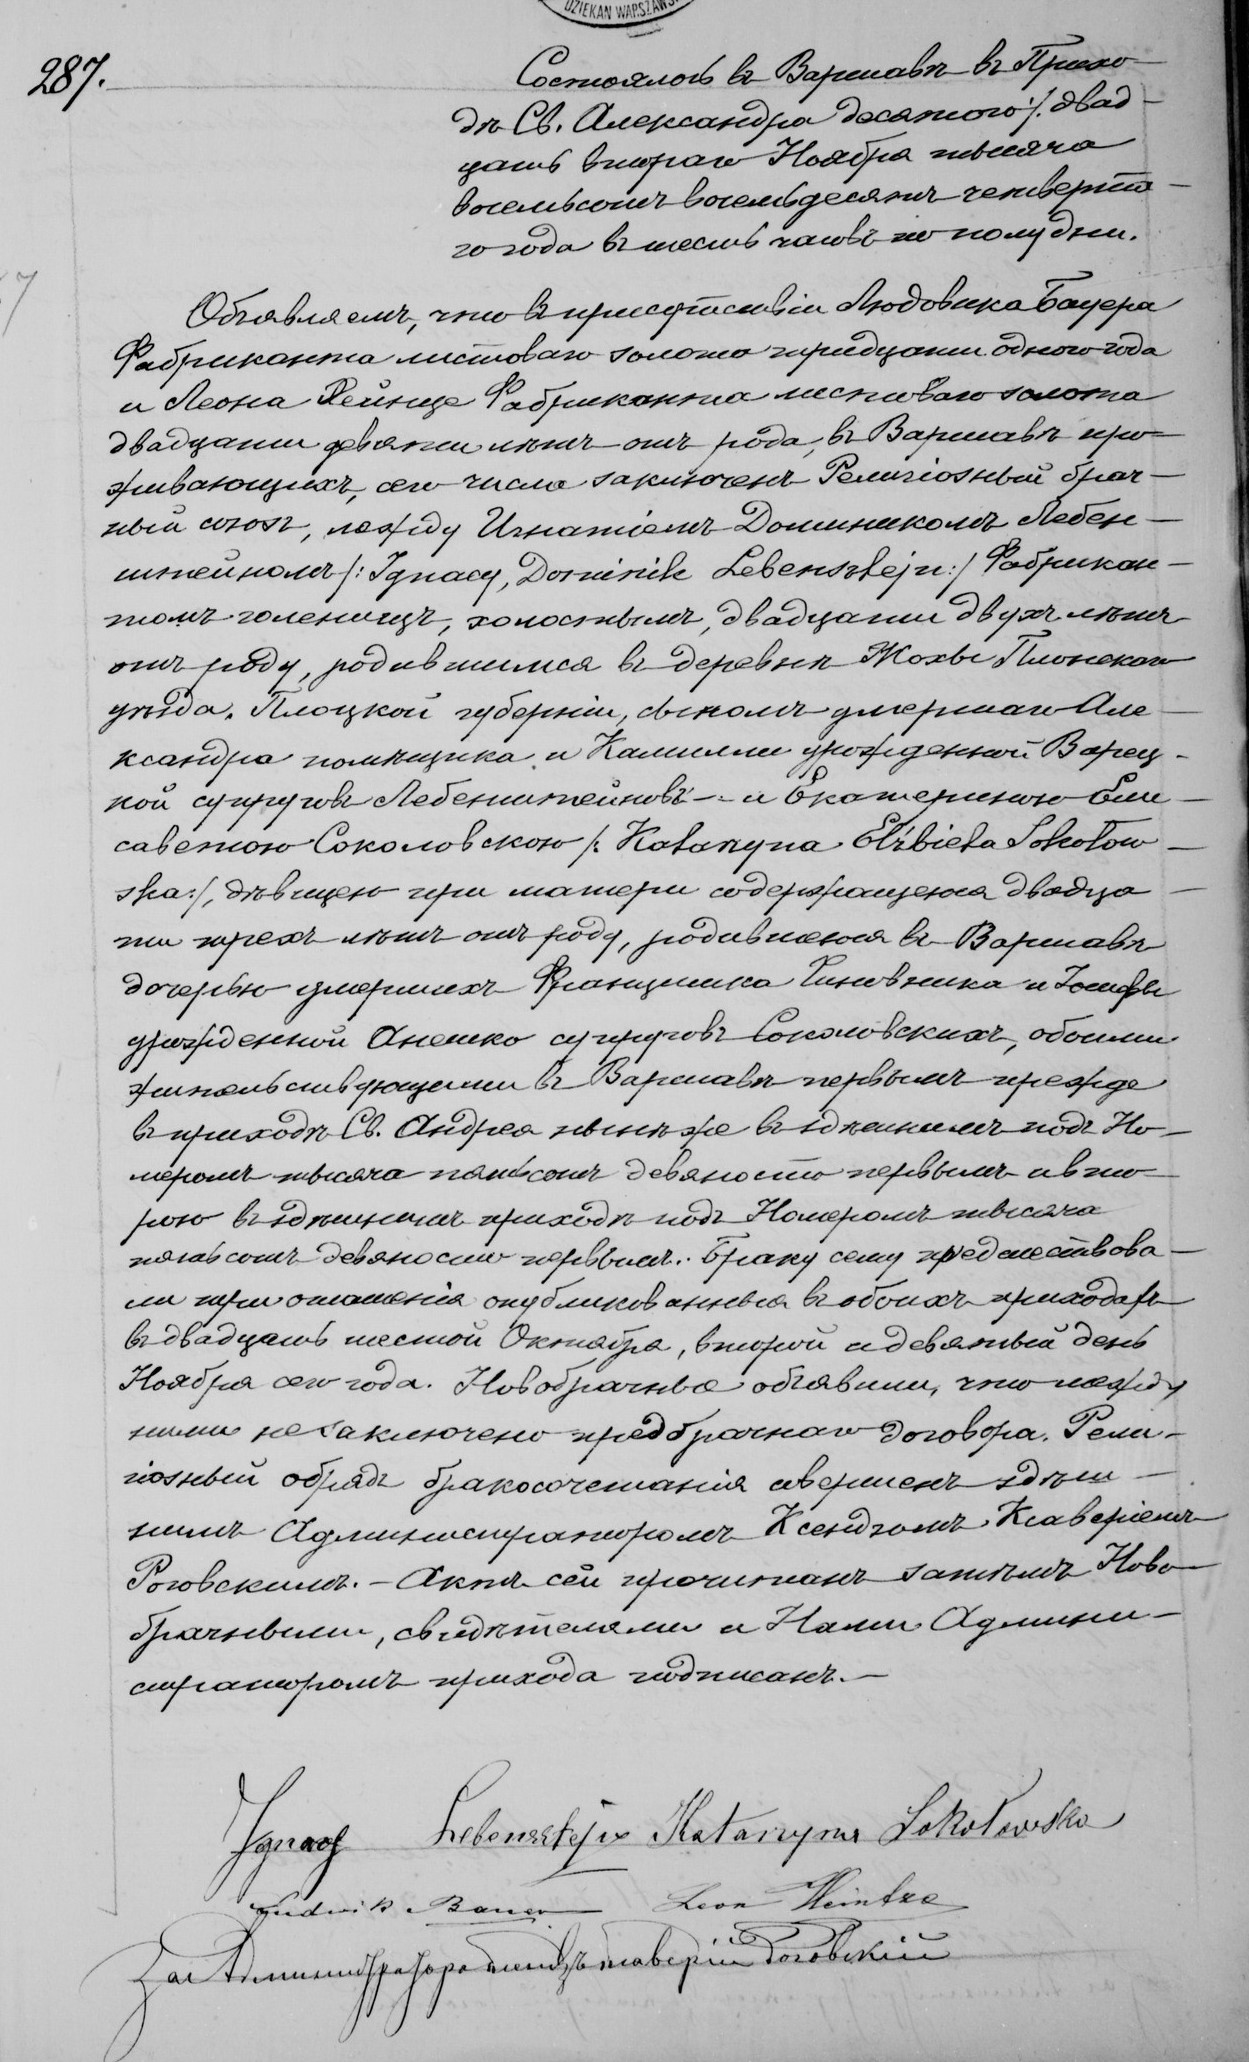 DZIEKAN WARSZAWS
287.
Состоялось въ Варшавѣ въ Прихо-
дѣ Св. Александра десятого /. двад-
цать втораго Ноября тысяча
восемьсотъ восемьдесятъ четверта-
го года въ шесть часовъ по полудни.
Объявляемъ, что въ присутствіи Людовика Бауера
Фабриканта листоваго золота тридцати одного года
и Леона Хейнце Фабриканта листоваго золота
двадцати девяти лѣтъ отъ рода, въ Варшавѣ про-
живающихъ, сего числа заключенъ Религіозный брач-
ный союзъ, между Игнатіемъ Доминикомъ Лебен-
штейномъ /: Ignacy, Dominik Lebensztejn :/ Фабрикан-
томъ голенищъ, холостымъ, двадцати двухъ лѣтъ
отъ роду, родившимся въ деревнѣ Жохы Плонскаго
уѣзда. Плоцкой губерніи, сыномъ умершаго Але-
ксандра помѣщика и Камилли урожденной Варец-
кой супруговъ Лебенштейновъ - и Екатериною Ели-
саветою Соколовскою /: Katarzyna Elżbieta Sokołow-
ska :/, дѣвицею при матери содержащеюся двадца-
ти трехъ лѣтъ отъ роду, родившеюся въ Варшавѣ
дочерью умершихъ Францишка Чиновника и Іосифы
урожденной Анешко супруговъ Соколовскихъ, обоими
жительствующими въ Варшавѣ первымъ прежде
въ приходѣ Св. Андрея нынѣ же въ здѣшнимъ подъ Но-
меромъ тысяча пятьсотъ девяносто первымъ а вто-
рою въ здѣшнимъ приходѣ подъ Номеромъ тысяча
пятьсотъ девяносто первымъ. Браку сему предшествова-
ли три оглашенія опубликованныя въ обоихъ приходахъ
въ двадцать шестой Октября, второй и девятый день
Ноября сего года. Новобрачные объявили, что между
ними не заключено предбрачнаго договора. Рели-
гіозный обрядъ бракосочетанія совершенъ здѣш-
нимъ Администраторомъ Ксендзомъ Ксаверіемъ
Роговскимъ. - Актъ сей прочитанъ затѣмъ Ново-
брачными, свидѣтелями и Нами Админи-
страторомъ прихода подписанъ. -
Ignacy Lebensztejn Katarzyna Sokołowska
Ludwik Bauer Leon Heintze
За Администратора Ксендзъ Ксаверій Роговскій